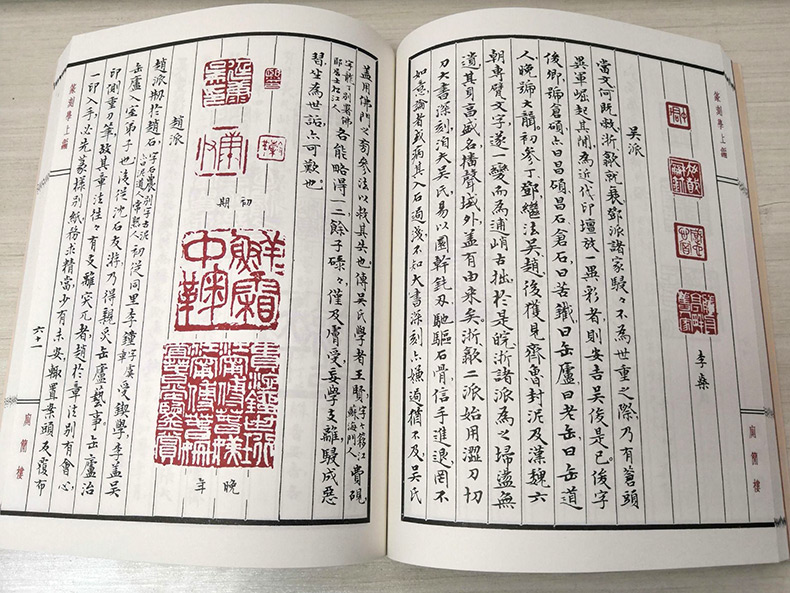 篆刻學上編
李桑
吳派
當文何既敝浙歙就衰鄧派諸家駸々不為世重之際乃有蒼頭
異軍崛起其間為近代印壇放一異彩者則安吉吳俊是已。俊字
俊卿號倉碩亦曰昌碩昌石倉石曰苦鐵曰缶廬曰老缶曰缶道
人晚號大聾。初參丁鄧繼法吳趙後獲見齊魯封泥及漢魏六
朝專甓文字遂一變而為逋峭古拙於是皖浙諸派為之埽盪無
遺其身盛名播聲域外蓋有由來矣。浙歙二派始用澀刀切
刀大書深刻洎夫吳氏易以圓幹鈍刃馳驅石骨信手進退罔不
如意論者或病其入石過淺不知大書深刻亦嫌過猶不及吳氏
厠簡樓
蓋用佛門之旁參法以救其失也。傳吳氏學者王賢字个簃江蘇海門人費硯
各能略得一二餘子碌々僅及膚受妄學支離駸成惡
習坐為世詬亦可歎也
初期
晚年
趙派
趙派刱於趙石字石農別字古泥亦曰泥道人常熟人初從同里李鍾受鍥學李蓋吳
缶廬入室弟子也後從沈石友游乃得親炙缶廬藝事缶廬治
印側重刀筆故其章法往々有支離突兀者趙於章法別有會心
一印入手必先篆樣別紙務求精當少有未安輒置案頭反復布
六十一
篆刻學上編
厠簡樓